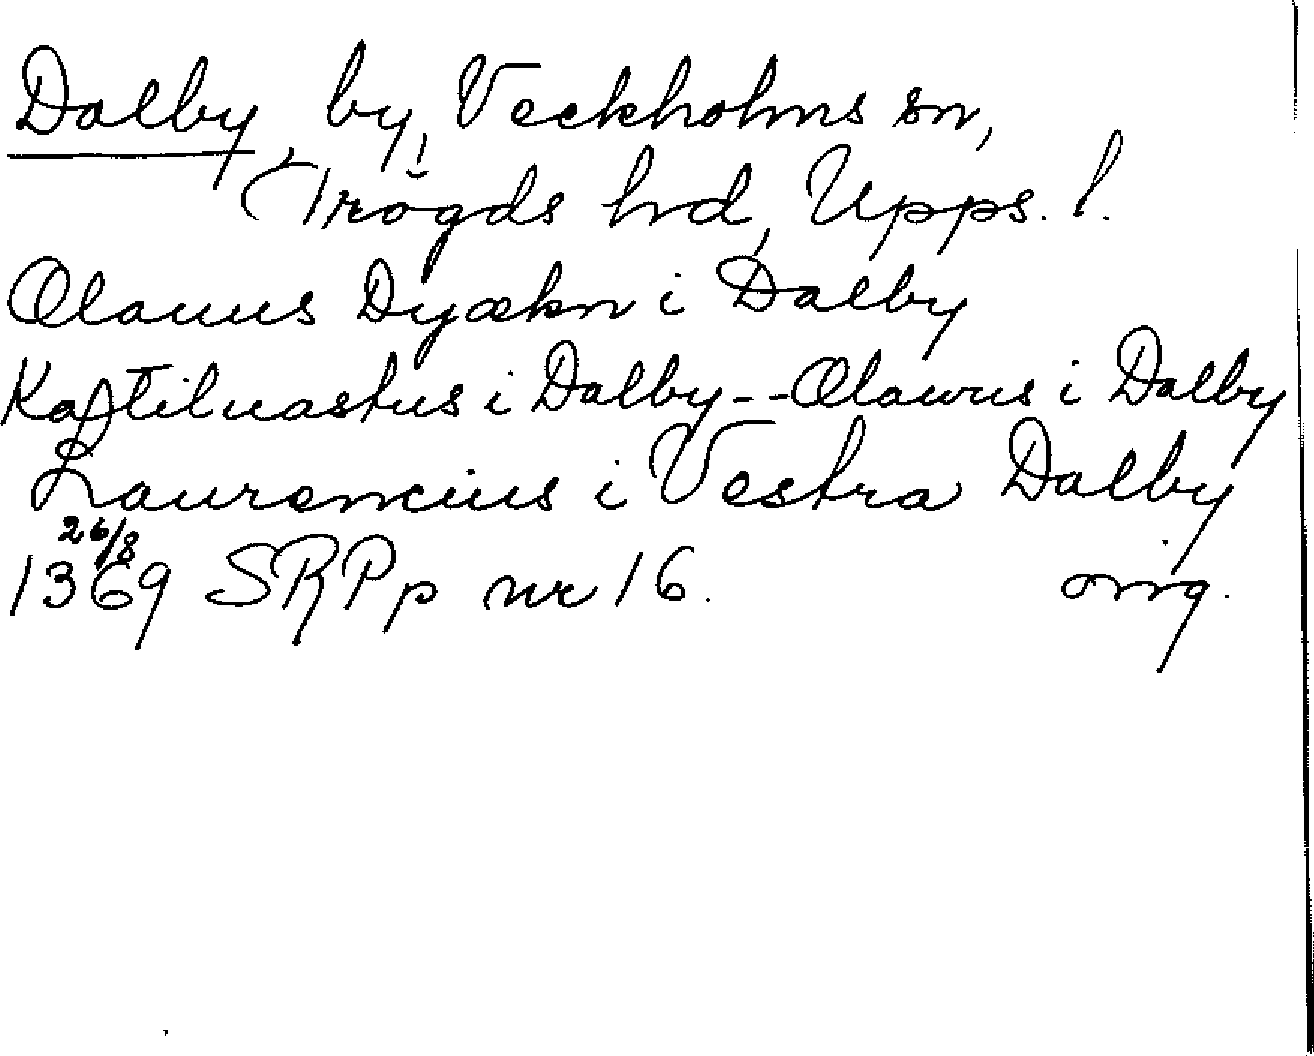 Dalby, by, Veckholms sn,
Trögds hd, Upps. l.
Olauus Dyækn i Dalby
Kaftiluastus i Dalby -- Olawus i Dalby
Laurencius i Vestra Dalby
26/8
1369 SRPp nr 16. orig.